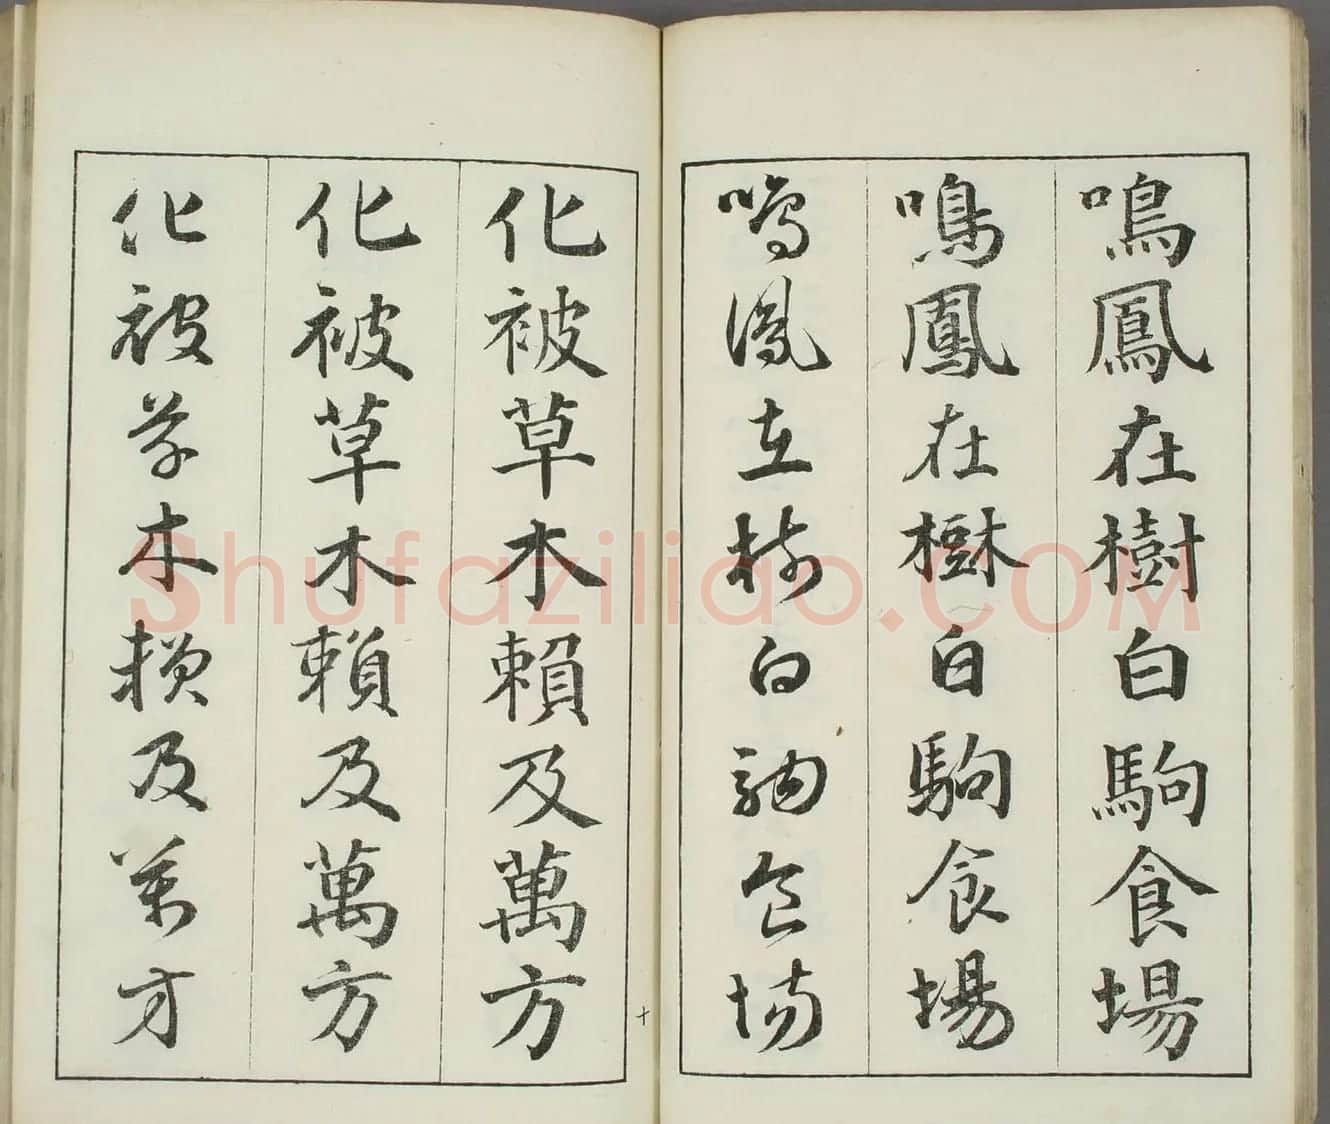 鳴鳳在樹白駒食場
鳴鳳在樹白駒食場
鳴鳳在樹白駒食場
化被草木賴及萬方
化被草木賴及萬方
化被草木賴及萬方
十
Shufaziliao.COM